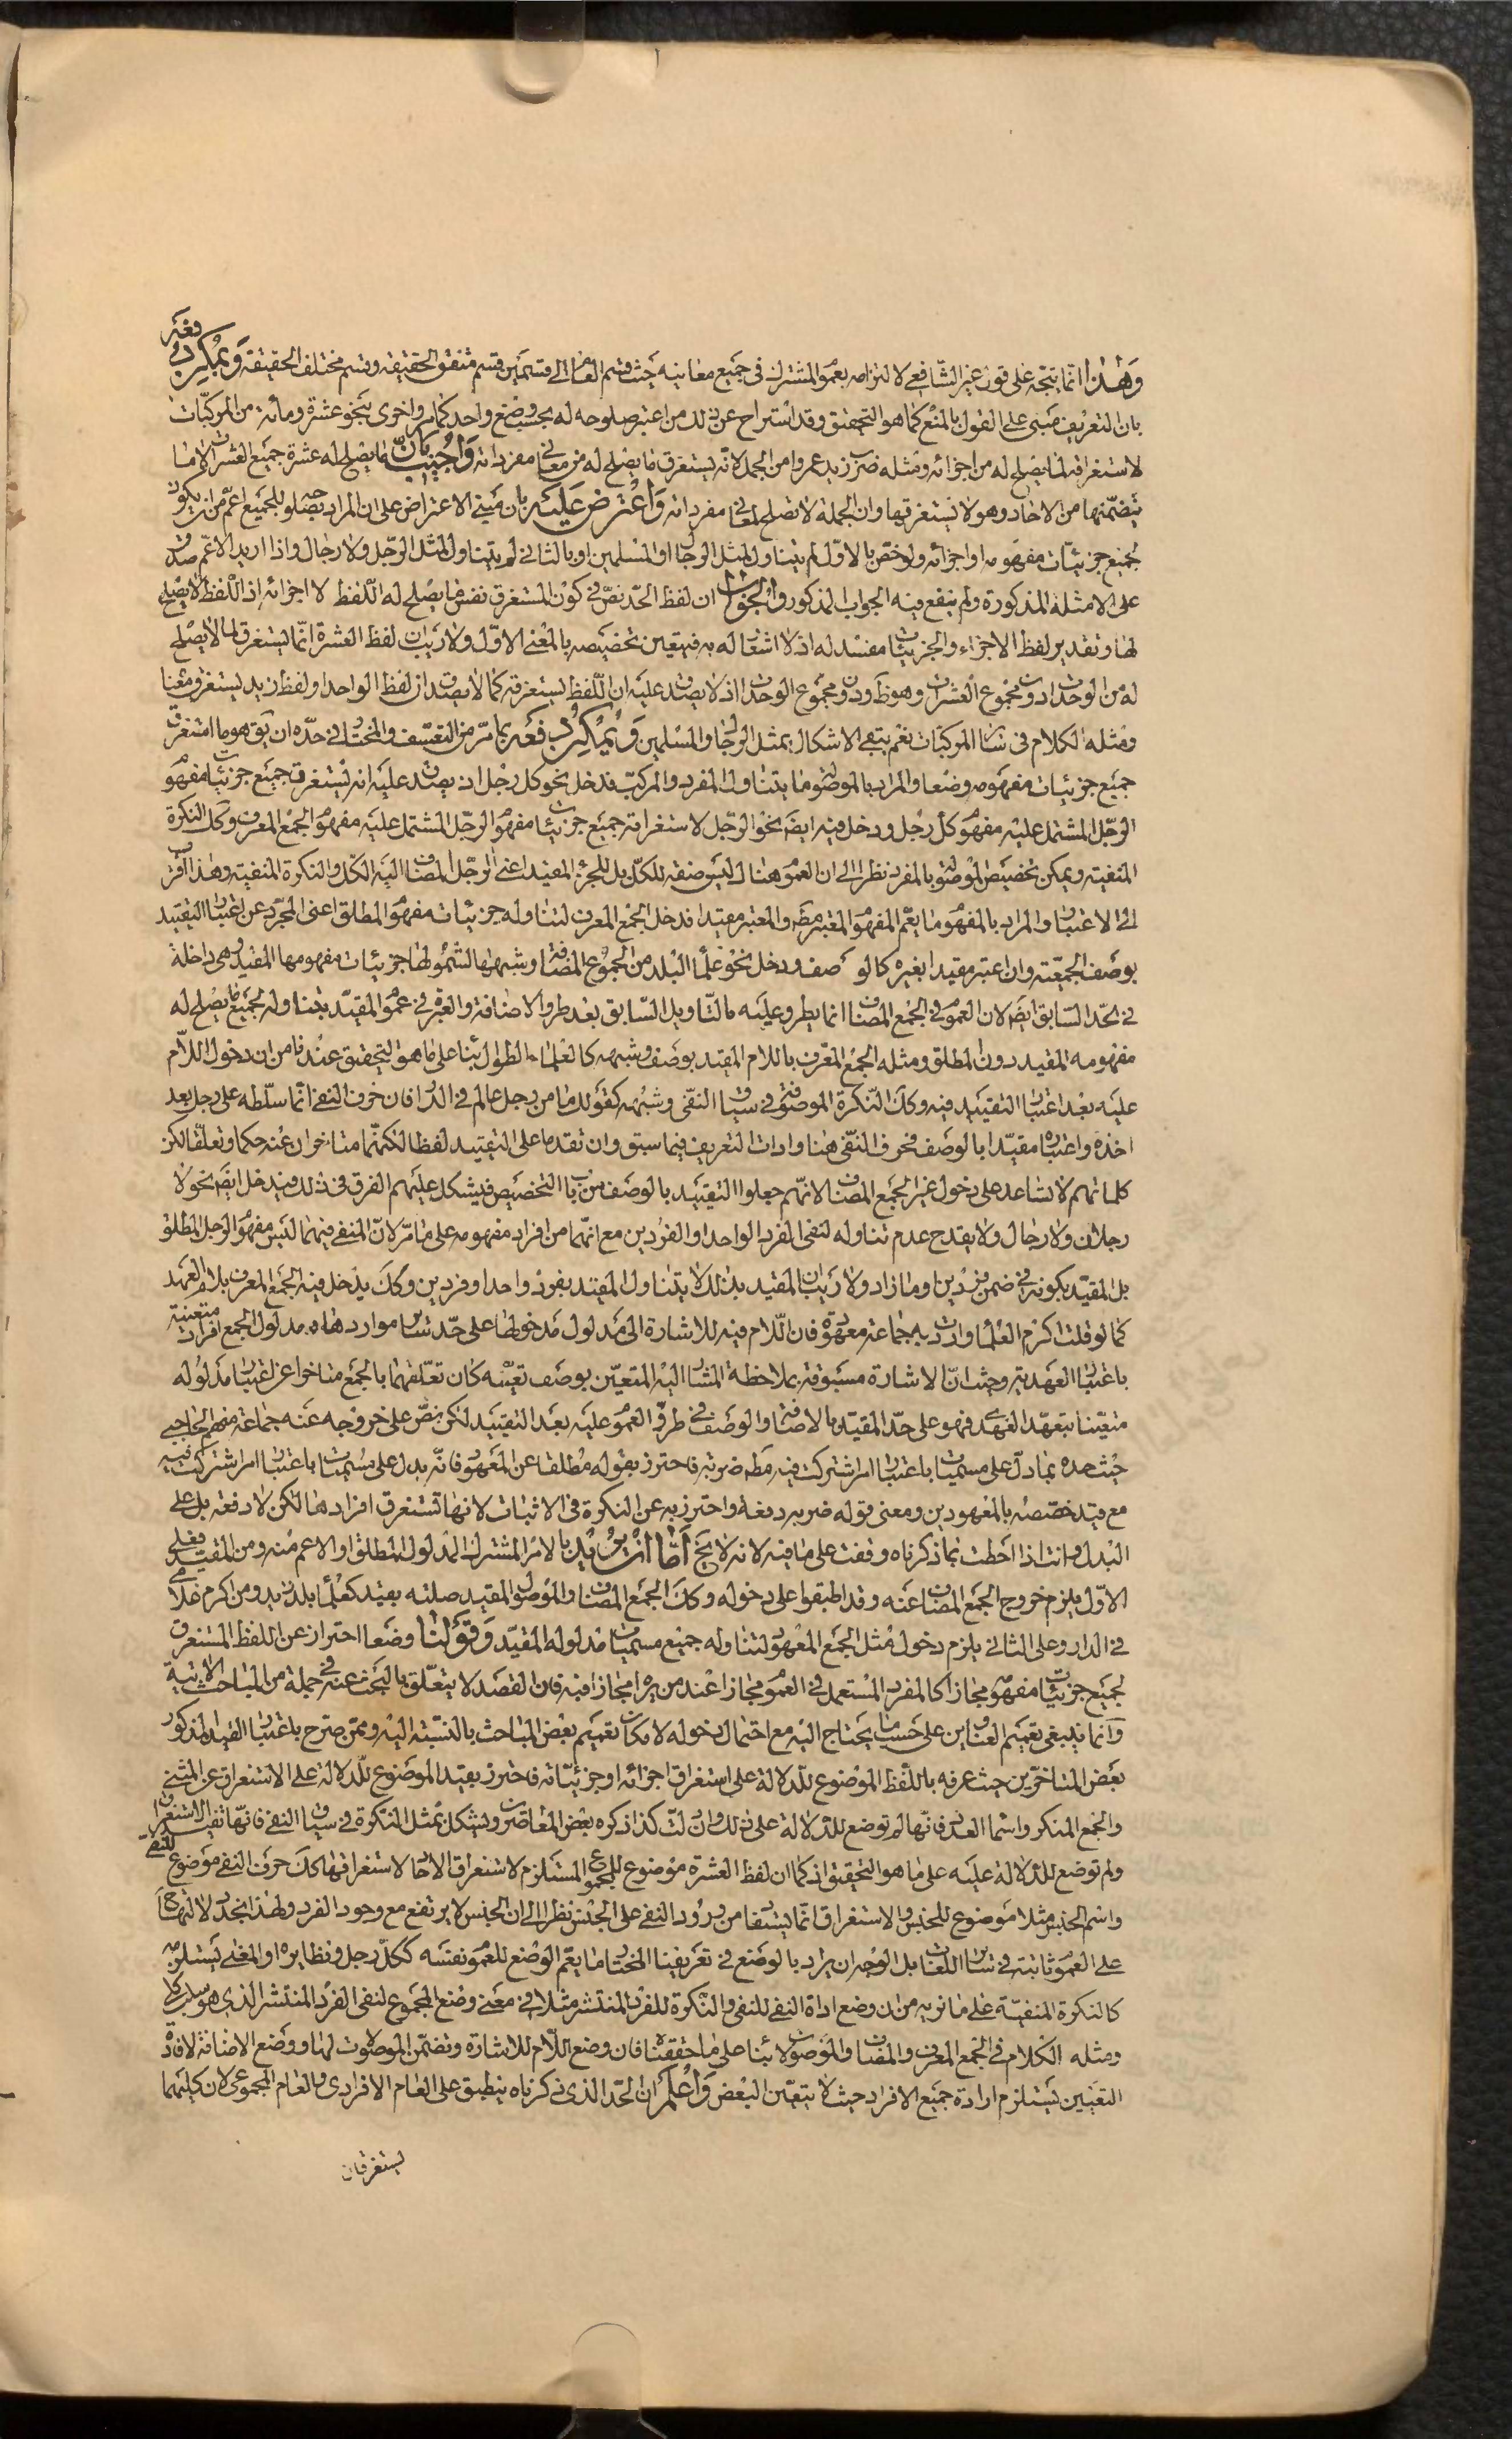 وهذا انما يتجه على قول غير الشافعي لالتزامه بعموم المشترك في جميع معانيه حيث قسم العام الى قسمين قسم متفق الحقيقة وقسم مختلف الحقيقة ويمكن دفعه
بان التعريف مبنى على القول بالمنع كما هو التحقيق وقد استراح عن ذلك من اعتبر صلوحه له بحسب وضع واحد كما مر واخرى بنحو عشرة ومأة من المركبات
لاستغراقه لما يصلح له من اجزائه ومثله ضرب زيد عمروا من الجمل لانه يستغرق ما يصلح له من معاني مفرداته واجيب بان ما يصلح له عشرة جميع العشرات لا ما
يتضمنها من الاحاد وهو لا يستغرقها وان الجملة لا تصلح لمعاني مفرداته واعترض عليه بان مبنى الاعتراض على ان المراد بصلوحه للجميع اعم من ان يكون
لجميع جزئيات مفهومه او اجزائه ولو خص بالاول لم يتناول لمثل الرجال او المسلمين او بالثاني لم يتناول لمثل الرجل ولا رجال واذا اريد الاعم صدق
على الامثلة المذكورة ولم ينفع فيه الجواب المذكور والجواب ان لفظ الحد نص في كون المستغرق نفس ما يصلح له اللفظ لا اجزائه اذ اللفظ لا يصلح
لها وتقدير لفظ الاجزاء والجزئيات مفسد له اذ لا اشعار له به فيتعين تخصيصه بالمعنى الاول ولا ريب ان لفظ العشرة انما يستغرق لما لا يصلح
له من الوحدات دون مجموع العشرات وهو ظ ودون مجموع الوحدات اذ لا يصدق عليه ان اللفظ يستغرقه كما لا يصدق ان لفظ الواحد او لفظ زيد يستغرق معناه
ومثله الكلام في سائر المركبات نعم يبقى الاشكال بمثل الرجال والمسلمين ويمكن دفعه بما مر من التعسف والمختار في حده ان يق هو ما استغرق
جميع جزئيات مفهومه وضعا والمراد بالموصول ما يتناول المفرد والمركب فدخل نحو كل رجل اذ يصدق عليه انه يستغرق جميع جزئيات مفهوم
الرجل المشتمل عليه مفهوم كل رجل ودخل فيه ايضا نحو الرجل لاستغراقه جميع جزئيات مفهوم الرجل المشتمل عليه مفهوم الجمع المعرف وكك النكرة
المنفية ويمكن تخصيص الموصول بالمفرد نظرا الى ان العموم هناك ليس صفة للكل بل للجزء المقيد اعنى الرجل المضاف اليه الكل والنكرة المنفية وهذا اقرب
الى الاعتبار والمراد بالمفهوم ما يعم المفهوم المعتبر مط والمعتبر مقيدا فدخل الجمع المعرف لتناوله جزئيات مفهوم المطلق اعنى المجرد عن اعتبار التقييد
بوصف الجمعية وان اعتبر مقيدا بغيره كما لو وصف ودخل نحو علماء البلد من الجموع المضافة وشبهها لشمولها جزئيات مفهومها المقيد وهى داخلة
في الحد السابق ايضا لان العموم في الجمع المضاف انما يطرو عليه بالتاويل السابق بعد طرو الاضافة والعبرة في عموم المقيد بتناوله لجميع ما يصلح له
مفهومه المقيد دون المطلق ومثله الجمع المعرف باللام المقيد بوصف وشبهه كالعلماء الطوال بناء على ما هو التحقيق عندنا من ان دخول اللام
عليه بعد اعتبار التقييد فيه وكك النكرة الموصوفة في سياق النفى وشبهه كقولك ما من رجل عالم في الدار فان حرف النفى انما سلطه على رجل بعد
اخذه واعتباره مقيدا بالوصف فحرف النفى هنا وادات التعريف فيما سبق وان تقدما على التقييد لفظا لكنهما متاخران عنه حكما وتعلقا لكن
كلماتهم لا تساعد على دخول غير الجمع المضاف لانهم جعلوا التقييد بالوصف من باب التخصيص فيشكل عليهم الفرق في ذلك فيدخل ايضا نحو لا
رجلان ولا رجال ولا يقدح عدم تناوله لنفى الفرد الواحد او الفردين مع انهما من افراد مفهومه على ما مر لان المنفى فيهما ليس مفهوم الرجل المطلق
بل المقيد بكونه في ضمن فردين او ما زاد ولا ريب ان المقيد بذلك لا يتناول المقيد بفرد واحد او فردين وكك يدخل فيه الجمع المعرف بلام العهد
كما لو قلت اكرم العلماء واردت به جماعة معهودة فان اللام فيه للاشارة الى مدلول مدخولها على حد سائر مواردها ومدلول الجمع افراد متعينة
باعتبار العهدية وحيث ان الاشارة مسبوقة بملاحظة المشار اليه المتعين بوصف تعينه كان تعلقها بالجمع متاخرا عن اعتبار مدلوله
متعينا بتعهد العهدى فهو على حد المقيد بالاضافة او الوصف في طرو العموم عليه بعد التقييد لكن نص على خروجه عنه جماعة منهم الحاجبى
حيث حده بما دل على مسميات باعتبار امر اشتركت فيه مط ضربة فاحترز بقوله مطلقا عن المعهود فانه يدل على مسميات باعتبار امر اشتركت فيه
مع قيد خصصه بالمعهودين ومعنى قوله ضربة دفعة واحترز به عن النكرة في الاثبات لانها تستغرق افرادها لكن لا دفعة بل على
البدل وانت اذا احطت بما ذكرناه وقفت على ما فيه لانه لا يخ اما ان يريد بالامر المشترك المدلول المطلق او الاعم منه ومن المقيد فعلى
الاول يلزم خروج الجمع المضاف عنه وقد اطبقوا على دخوله وكك الجمع المضاف والموصول المقيد صلته بقيد كعلماء بلد زيد ومن اكرم غلامى
في الدار وعلى الثاني يلزم دخول مثل الجمع المعهود لتناوله جميع مسميات مدلوله المقيد وقولنا وضعا احتراز عن اللفظ المستغرق
لجميع جزئيات مفهومه مجازا كالمفرد المستعمل في العموم مجازا عند من يراه مجازا فيه فان القصد لا يتعلق بالبحث عنه في جملة من المباحث الاتية
وانما ينبغى تعميم العناوين على حسب ما يحتاج اليه مع احتمال دخوله لامكان تعميم بعض المباحث بالنسبة اليه وممن صرح باعتبار القيد المذكور
بعض المتاخرين حيث عرفه باللفظ الموضوع للدلالة على استغراق اجزائه او جزئياته فاحترز بقيد الموضوع للدلالة على الاستغراق عن المثنى
والجمع المنكر واسماء العدد فانها لم توضع للدلالة على ذلك وان دلت كذا ذكره بعض المعاصرين ويشكل بمثل النكرة في سياق النفى فانها تفيد الاستغراق
ولم توضع للدلالة عليه على ما هو التحقيق اذ كما ان لفظ العشرة موضوع للمجموع المستلزم لاستغراق الاحاد لا استغراقها كك حرف النفى موضوع للنفى
واسم الجنس مثلا موضوع للجنس والاستغراق انما يستفاد من ورود النفى على الجنس نظرا الى ان الجنس لا يرتفع مع وجود الفرد ولهذا نجد دلالتها
على العموم ثابتة في سائر اللغات بل الوجه ان يراد بالوضع في تعريفنا المختار ما يعم الوضع للعموم نفسه ككل رجل ونظايره او المعنى يستلزمه
كالنكرة المنفية على ما نريه من ان وضع اداة النفى للنفى والنكرة للفرد المنتشر مثلا في معنى وضع المجموع لنفى الفرد المنتشر الذى هو سلب كلى
ومثله الكلام في الجمع المعرف والمضاف والموصولات بناء على ما حققناه فان وضع اللام للاشارة وتضمن الموصولات لها ووضع الاضافة لافادة
التعيين يستلزم ارادة جميع الافراد حيث لا يتعين البعض واعلم ان الحد الذى ذكرناه ينطبق على العام الافرادى والعام المجموعى لان كليهما
يستغرقان